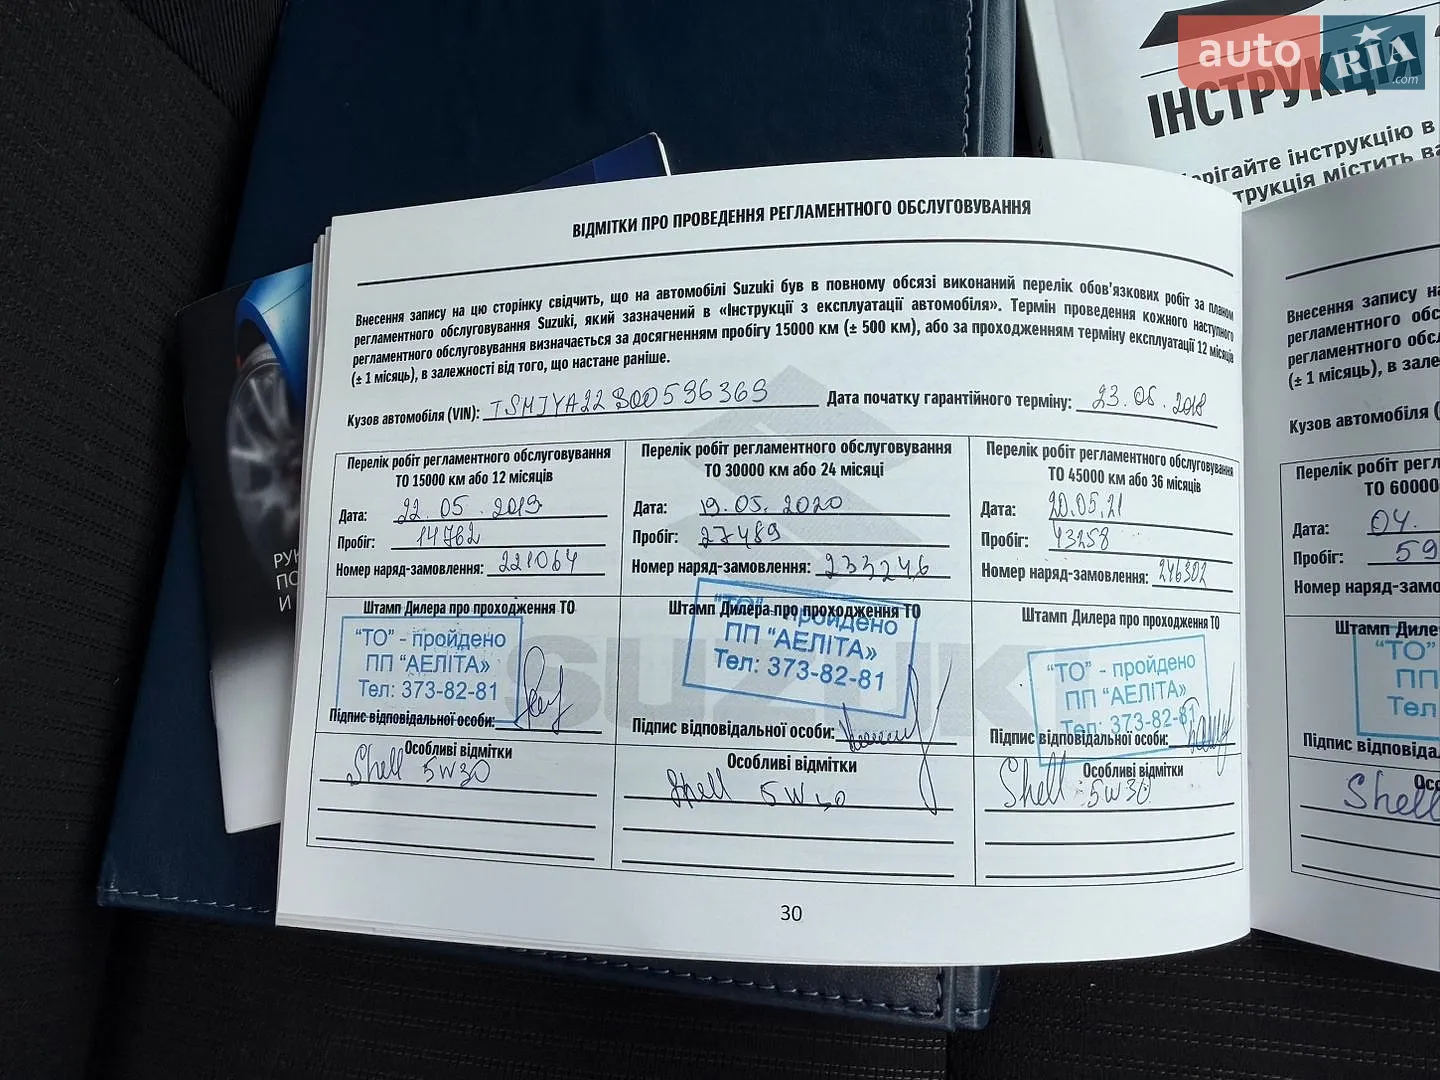 auto RIA .com
ІНСТРУКЦІЯ
ерігайте інструкцію в
трукція містить ва
ВІДМІТКИ ПРО ПРОВЕДЕННЯ РЕГЛАМЕНТНОГО ОБСЛУГОВУВАННЯ
Внесення запису на цю сторінку свідчить, що на автомобілі Suzuki був в повному обсязі виконаний перелік обов'язкових робіт за планом
регламентного обслуговування Suzuki, який зазначений в «Інструкції з експлуатації автомобіля». Термін проведення кожного наступного
регламентного обслуговування визначається за досягненням пробігу 15000 км (± 500 км), або за проходженням терміну експлуатації 12 місяців
(± 1 місяць), в залежності від того, що настане раніше.
Кузов автомобіля (VIN): TSMJYA22S00596369 Дата початку гарантійного терміну: 23.05.2018
Перелік робіт регламентного обслуговування
ТО 15000 км або 12 місяців
Дата: 22.05.2019
Пробіг: 14762
Номер наряд-замовлення: 221064
Штамп Дилера про проходження ТО
"ТО" - пройдено
ПП "АЕЛІТА»
Тел: 373-82-81
Підпис відповідальної особи:
Особливі відмітки
Shell 5W30
Перелік робіт регламентного обслуговування
ТО 30000 км або 24 місяці
Дата: 19.05.2020
Пробіг: 27489
Номер наряд-замовлення: 233246
Штамп Дилера про проходження ТО
"ТО" - пройдено
ПП "АЕЛІТА»
Тел: 373-82-81
Підпис відповідальної особи:
Особливі відмітки
Shell 5W30
Перелік робіт регламентного обслуговування
ТО 45000 км або 36 місяців
Дата: 20.05.21
Пробіг: 43258
Номер наряд-замовлення: 246302
Штамп Дилера про проходження ТО
"ТО" - пройдено
ПП "АЕЛІТА»
Тел: 373-82-81
Підпис відповідальної особи:
Особливі відмітки
Shell 5W30
SUZUKI
30
Внесення запису на
регламентного обс
регламентного обсл
(± 1 місяць), в зале
Кузов автомобіля (
Перелік робіт регл
ТО 60000
Дата: 04.
Пробіг: 59
Номер наряд-замо
Штамп Диле
"ТО"
ПП
Тел
Підпис відповіда
Осо
Shell
РУ
ПО
И